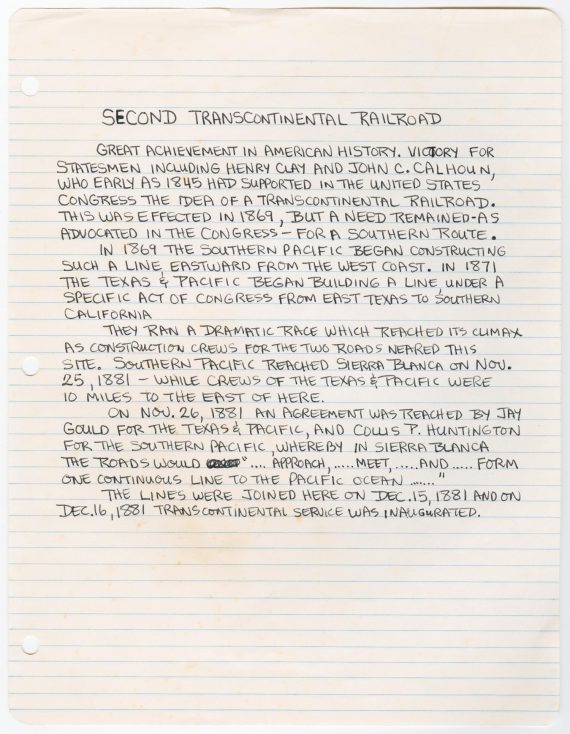 SECOND TRANSCONTINENTAL RAILROAD
GREAT ACHIEVEMENT IN AMERICAN HISTORY. VICTORY FOR
STATESMEN INCLUDING HENRY CLAY AND JOHN C. CALHOUN,
WHO EARLY AS 1845 HAD SUPPORTED IN THE UNITED STATES
CONGRESS THE IDEA OF A TRANSCONTINENTAL RAILROAD.
THIS WAS EFFECTED IN 1869, BUT A NEED REMAINED-AS
ADVOCATED IN THE CONGRESS - FOR A SOUTHERN ROUTE.
IN 1869 THE SOUTHERN PACIFIC BEGAN CONSTRUCTING
SUCH A LINE EASTWARD FROM THE WEST COAST. IN 1871
THE TEXAS & PACIFIC BEGAN BUILDING A LINE UNDER A
SPECIFIC ACT OF CONGRESS FROM EAST TEXAS TO SOUTHERN
CALIFORNIA
THEY RAN A DRAMATIC RACE WHICH REACHED ITS CLIMAX
AS CONSTRUCTION CREWS FOR THE TWO ROADS NEARED THIS
SITE. SOUTHERN PACIFIC REACHED SIERRA BLANCA ON NOV.
25, 1881 - WHILE CREWS OF THE TEXAS & PACIFIC WERE
10 MILES TO THE EAST OF HERE.
ON NOV. 26, 1881 AN AGREEMENT WAS REACHED BY JAY
GOULD FOR THE TEXAS & PACIFIC, AND COLLIS P. HUNTINGTON
FOR THE SOUTHERN PACIFIC, WHEREBY IN SIERRA BLANCA
THE ROADS WOULD ".... APPROACH, ..... MEET, ..... AND ..... FORM
ONE CONTINUOUS LINE TO THE PACIFIC OCEAN ......"
THE LINES WERE JOINED HERE ON DEC. 15, 1881 AND ON
DEC. 16, 1881 TRANSCONTINENTAL SERVICE WAS INAUGURATED.